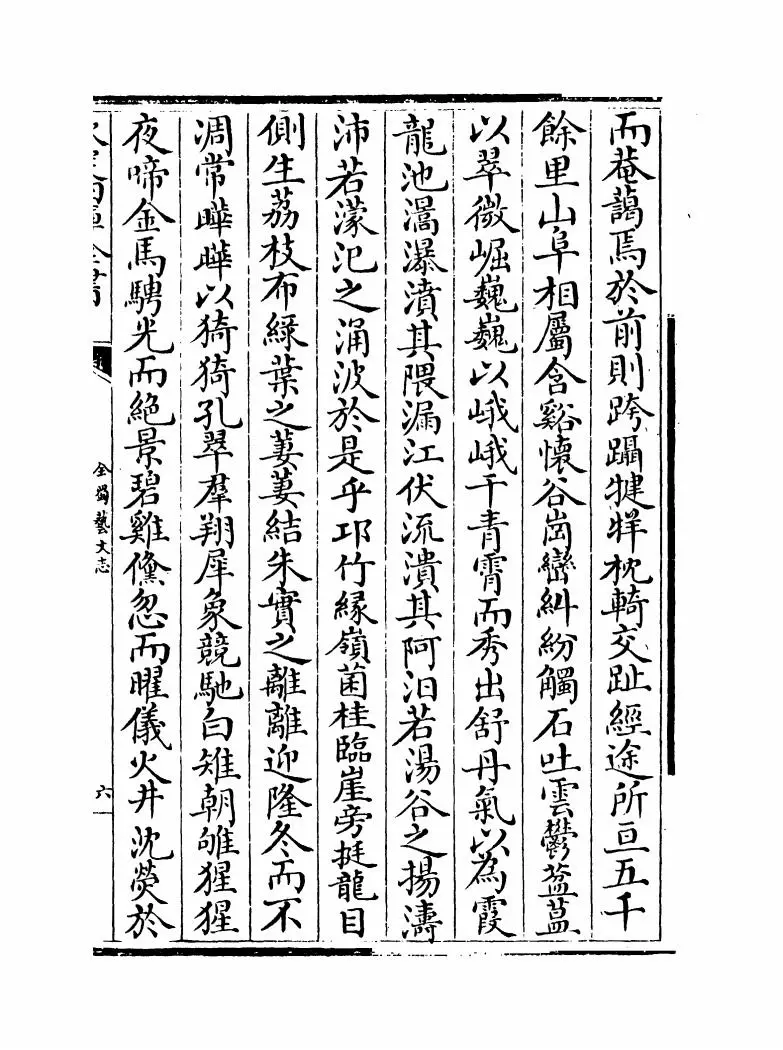 而菴藹焉於前則跨躡犍牂枕輢交趾經途所亘五千
餘里山阜相屬含谿懷谷崗巒糾紛觸石吐雲鬱葢蒀
以翠微崛巍巍以峨峨干青霄而秀出舒丹氣以為霞
龍池瀥瀑濆其隈漏江伏流潰其阿汩若湯谷之揚濤
沛若濛汜之涌波於是乎邛竹緣嶺菌桂臨崖旁挺龍目
側生荔枝布綠葉之萋萋結朱實之離離迎隆冬而不
凋常曄曄以猗猗孔翠羣翔犀象競馳白雉朝雊猩猩
夜啼金馬騁光而絕景碧雞儵忽而曜儀火井沈熒於
全蜀藝文志
六